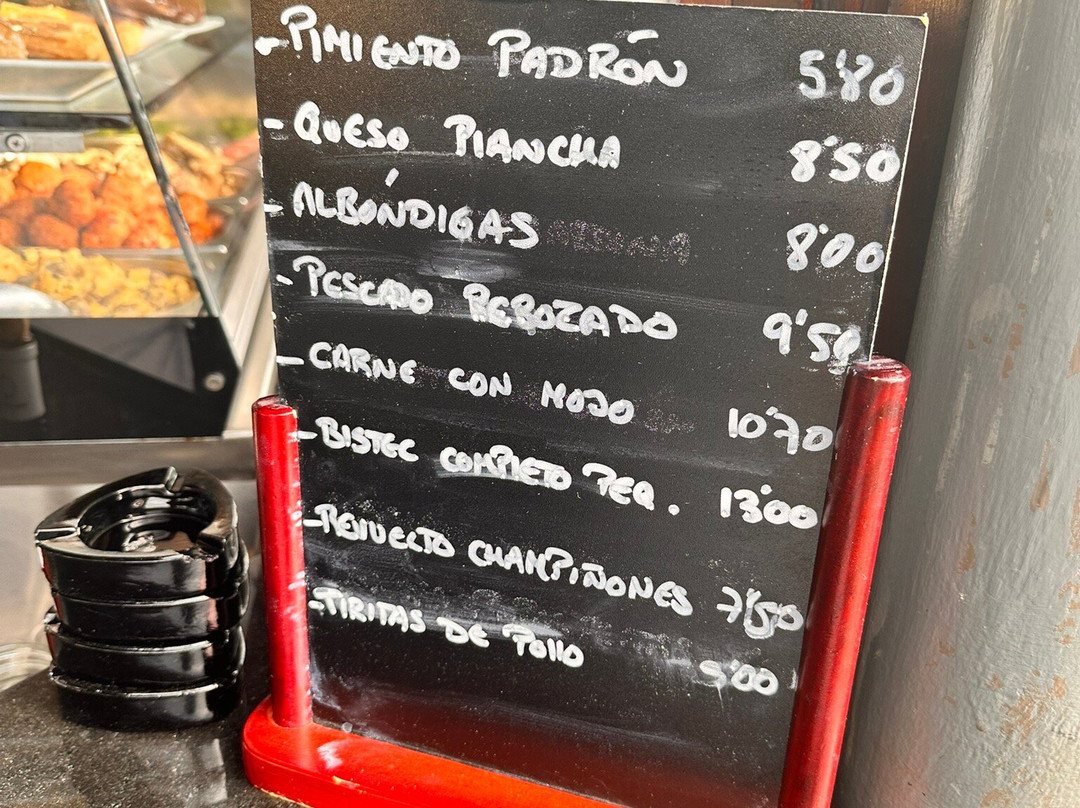 - PIMIENTO PADRÓN 5'80
- QUESO PLANCHA 8'50
- ALBÓNDIGAS 8'00
- PESCADO REBOZADO 9'50
- CARNE CON MOJO 10'70
- BISTEC COMPLETO PEQ. 13'00
- REVUELTO CHAMPIÑONES 7'50
- TIRITAS DE POLLO 9'00